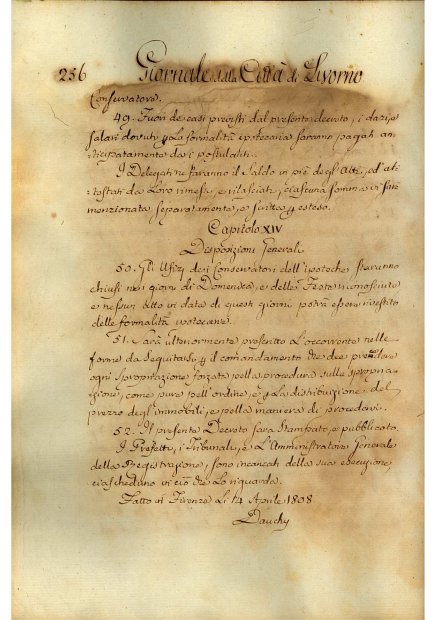 256 Giornale della Città di Livorno
Conservatore.
49. Fuori de casi previsti dal presente decreto, i dazi, e
salari dovuti p le formalità ipotecarie saranno pagati an-
ticipatamente dai postulanti.
I Delegati ne faranno il Saldo in piè degl'Atti, ed at-
testati da Loro rimessi, e rilasciati, ciascuna somma vi sarà
menzionata separatamente, e scritta p esteso.
Capitolo XIV
Disposizioni Generali
50. Gli Ufizj dei Conservatori dell'ipoteche staranno
chiusi nei giorni di Domenica, e delle Feste riconosciute
e nessun atto in data di questi giorni potrà essere rivestito
delle formalità ipotecarie.
51. Sarà ulteriormente prescritto l'occorrente nelle
forme da seguitarsi p il comandamento che dee precedere
ogni Spropriazione forzata nella procedura sulle spropria-
zioni, come pure nell'ordine, e p La distribuzione del
prezzo degl'immobili, e nella maniera di procedervi.
52. Il presente Decreto sarà stampato, e pubblicato.
I Prefetti, i Tribunali, e L'Amministratore Generale
della Registrazione, sono incaricati della sua esecuzione
ciascheduno in ciò che Lo riguarda.
Fatto in Firenze Li 14 Aprile 1808
Dauchy